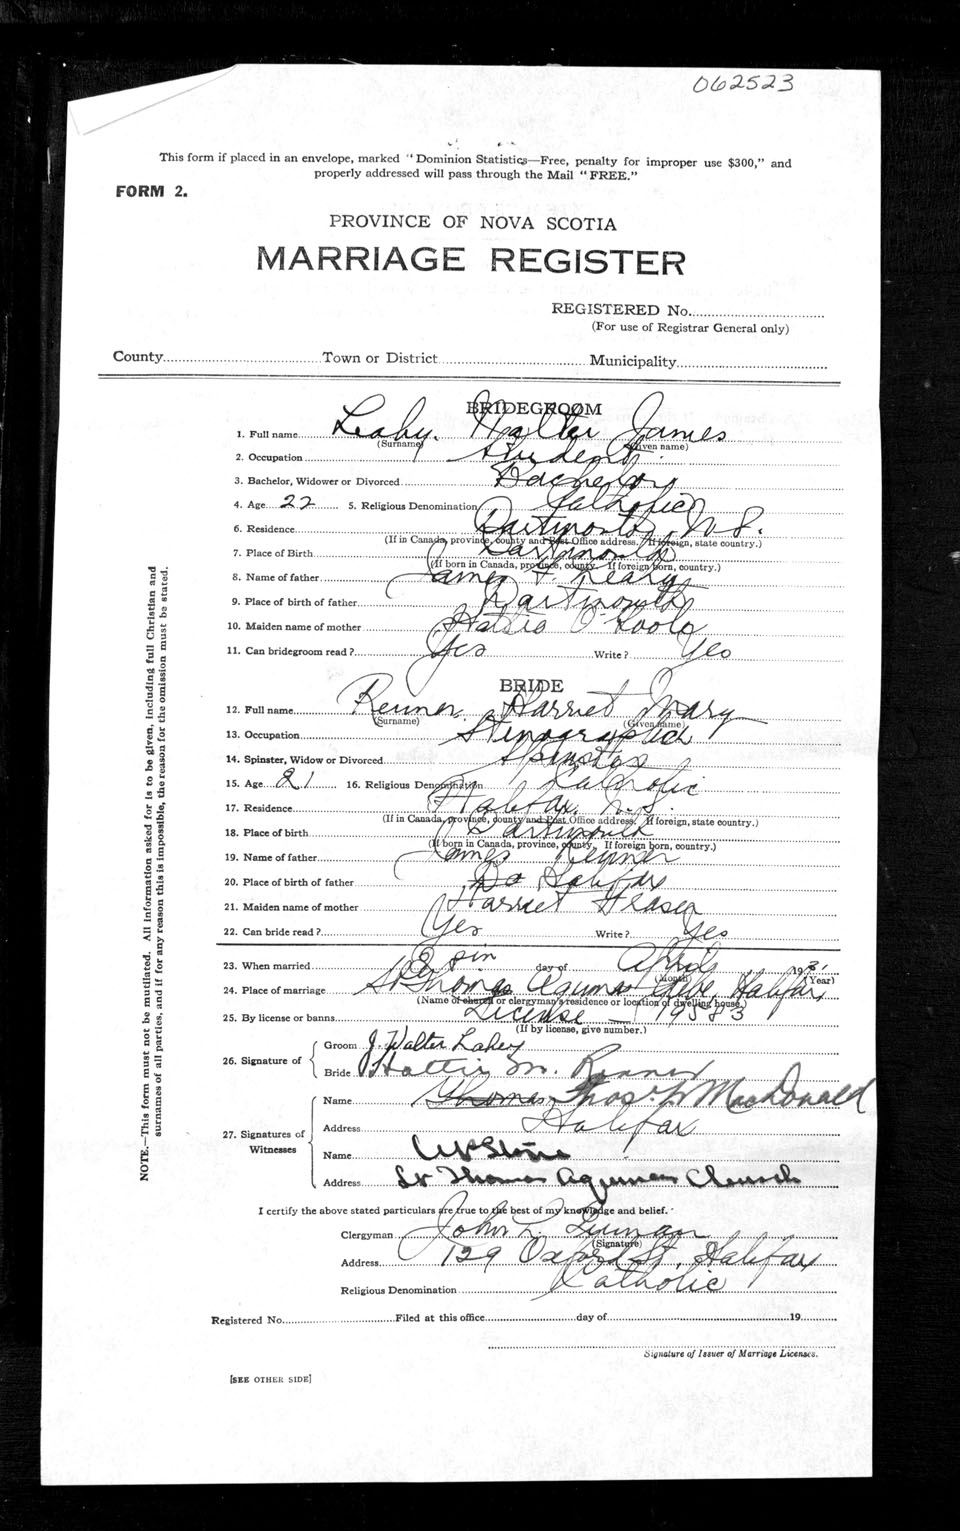 062523
This form if placed in an envelope, marked "Dominion Statistics—Free, penalty for improper use $300," and
properly addressed will pass through the Mail "FREE."
FORM 2.
PROVINCE OF NOVA SCOTIA
MARRIAGE REGISTER
REGISTERED No.
(For use of Registrar General only)
County Town or District Municipality
BRIDEGROOM
1. Full name Leahy. Walter James
(Surname) (Given name)
2. Occupation Student.
3. Bachelor, Widower or Divorced Bachelor
4. Age 22 5. Religious Denomination Catholic
6. Residence Dartmouth, N.S.
(If in Canada, province, county and Post Office address. If foreign, state country.)
7. Place of Birth Dartmouth
(If born in Canada, province, county. If foreign born, country.)
8. Name of father James F. Leahy
9. Place of birth of father Dartmouth
10. Maiden name of mother O'Toole
11. Can bridegroom read? Yes Write? Yes
BRIDE
12. Full name Renner, Harriet Mary
(Surname) (Given name)
13. Occupation
14. Spinster, Widow or Divorced Spinster
15. Age 21 16. Religious Denomination Catholic
17. Residence Halifax, N.S.
(If in Canada, province, county and Post Office address. If foreign, state country.)
18. Place of birth Dartmouth
(If born in Canada, province, county. If foreign born, country.)
19. Name of father James Renner
20. Place of birth of father Halifax
21. Maiden name of mother Harriet Fraser
22. Can bride read? Yes Write? Yes
23. When married day of April 19
(Month) (Year)
24. Place of marriage St Thomas Aquinas Halifax,
(Name of church or clergyman's residence or location of dwelling house.)
25. By license or banns License — 19583
(If by license, give number.)
26. Signature of Groom J. Walter Lahey
Bride Hattie M. Renner
27. Signatures of Witnesses
Name Thomas Thos. MacDonald
Address Halifax
Name
Address St Thomas Aquinas Church
I certify the above stated particulars are true to the best of my knowledge and belief.
Clergyman John L.
(Signature)
Address 129 Oxford St. Halifax
Religious Denomination Catholic
Registered No. Filed at this office day of 19
Signature of Issuer of Marriage Licenses.
[SEE OTHER SIDE]
NOTE.—This form must not be mutilated. All information asked for is to be given, including full Christian and
surnames of all parties, and if for any reason this is impossible, the reason for the omission must be stated.